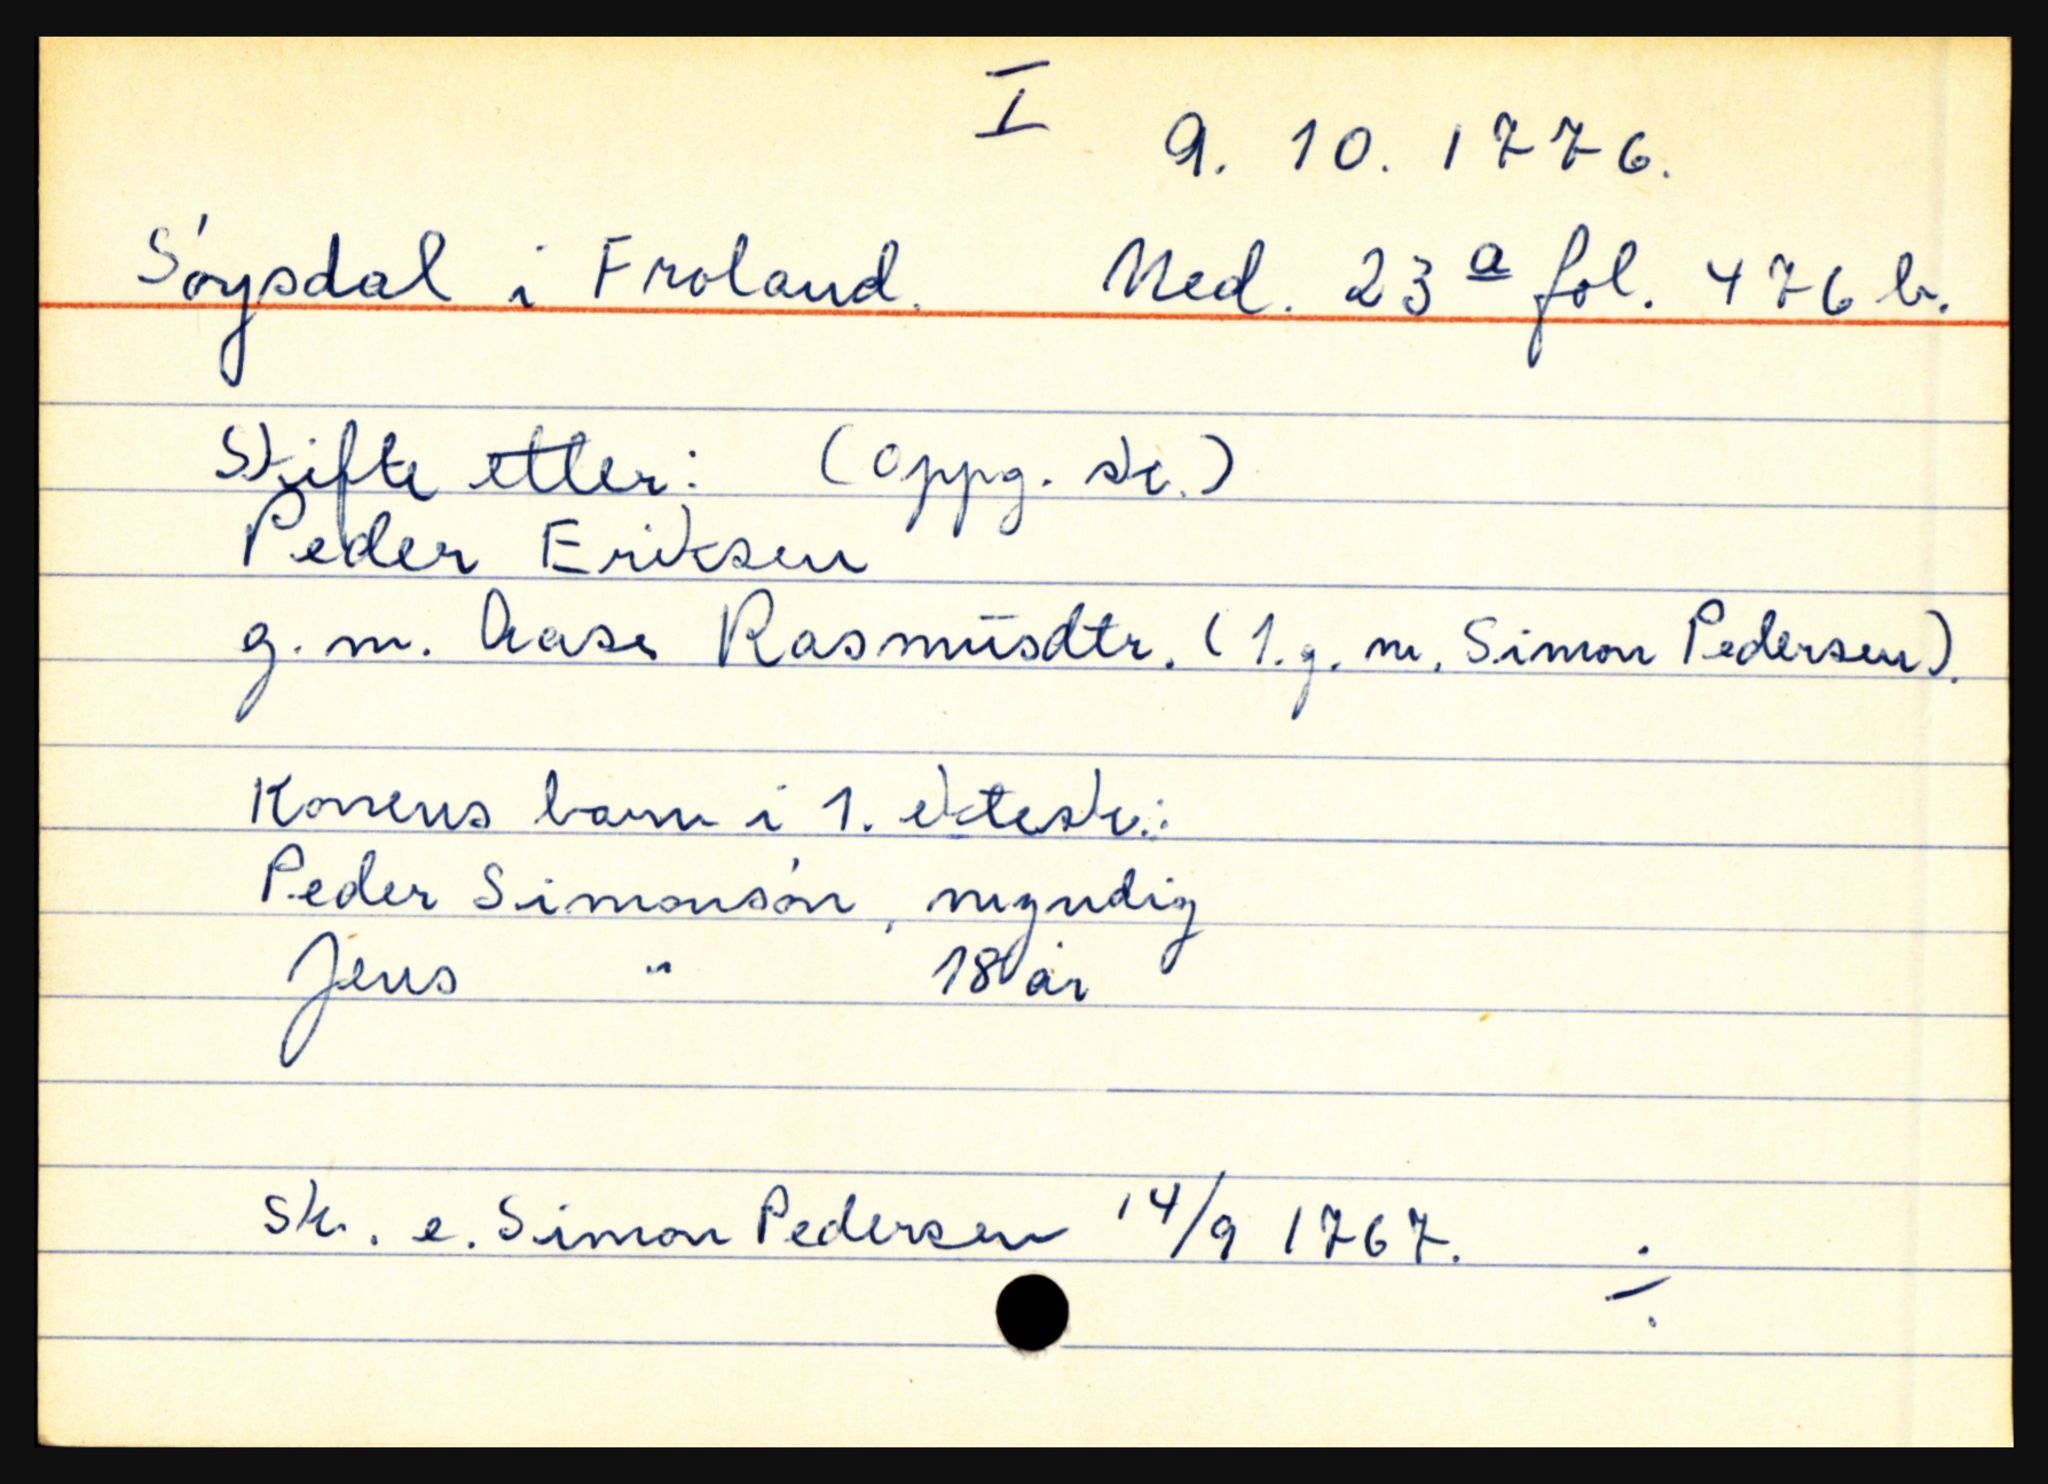 I 9. 10. 1776.
Söysdal i Froland. Ned. 23 a fol. 476 b.
Skifte etter: (Oppg. sk.)
Peder Eriksen
g. m. Aase Rasmusdtr. (1. g. m. Simon Pedersen).
Konens barn i 1. ektesk.:
Peder Simonsön, myndig
Jens " 18 år
Sk. e. Simon Pedersen 14/9 1767.
./.